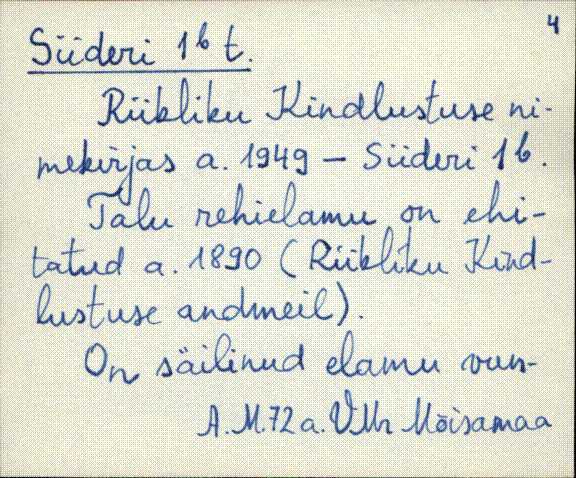 4
Siideri 1b t.
Riikliku Kindlustuse ni-
mekirjas a. 1949 - Siideri 1b.
Talu rehielamu on ehi-
tatud a. 1890 (Riikliku Kind-
lustuse andmeil).
On säilinud elamu vun-
A.M.72 a. VMr Mõisamaa